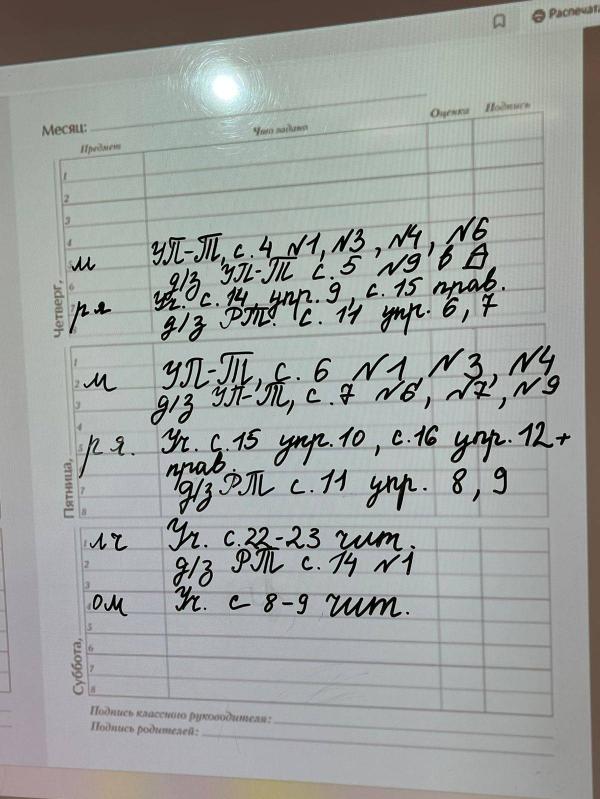 Распечата
Месяц:
Предмет Что задано Оценка Подпись
Четверг,
1
2
3
4
м УП-Т, с. 4 №1, №3, №4, №6
д/з УП-Т с. 5 №9 в
ря Уч. с. 14, упр. 9, с. 15 прав.
д/з РТ. с. 11 упр. 6, 7
Пятница,
1
м УП-Т, с. 6 №1, №3, №4
2
3
д/з УП-Т, с. 7 №6, №7, №9
р я. Уч. с. 15 упр. 10, с. 16 упр. 12 +
прав.
7
д/з РТ с. 11 упр. 8, 9
8
Суббота,
лч Уч. с. 22-23 чит.
2
д/з РТ с. 14 №1
3
ом Уч. с 8-9 чит.
5
6
7
8
Подпись классного руководителя:
Подпись родителей: